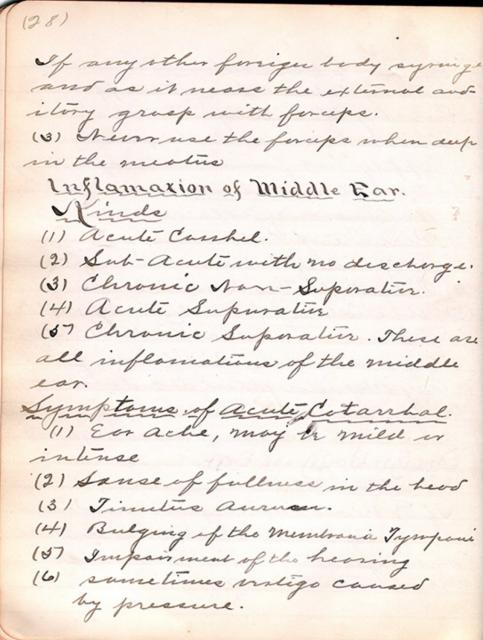 (28)
If any other foreign body syringe
and as it nears the external aud
itory grasp with forceps.
(3) Never use the forceps when deep
in the meatus
Inflamation of Middle Ear.
Kinds
(1) Acute
(2) Sub-Acute with no discharge.
(3) Chronic Non-Suporative.
(4) Acute Supurative
(5) Chronic Suporative. These are
all inflamations of the middle
ear.
Symptoms of Acute Catarrhal.
(1) Ear Ache, may be mild or
intense
(2) Sense of fullness in the head
(3) Tinitus Aurum.
(4) Bulging of the Membrania Tympani
(5) Impairment of the hearing
(6) sometimes vertigo caused
by pressure.